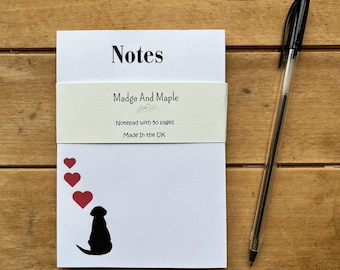 Notes
Madge And Maple
Notepad with 50 pages
Made In the UK